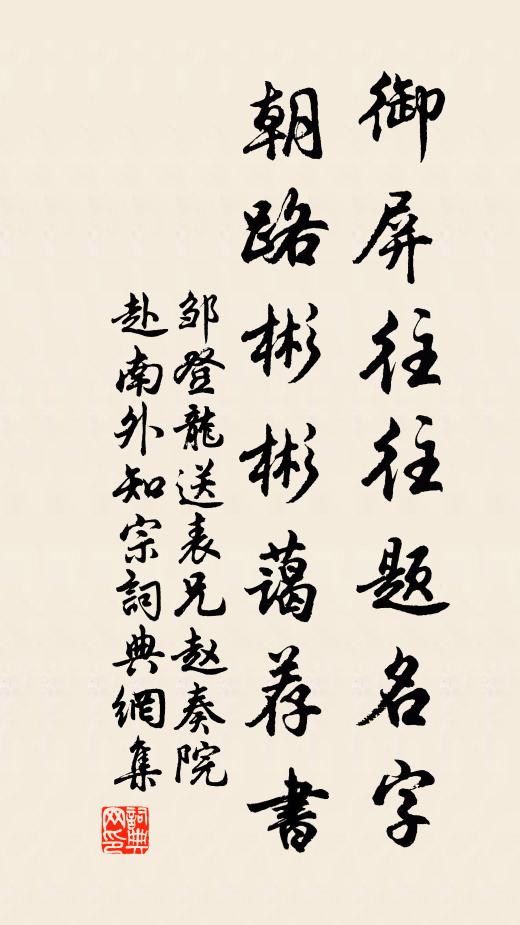 御屏往往题名字
朝路彬彬蔼荐書
邹登龍送表兄赵奏院
赴南外知宗詞典網集
詞典网印